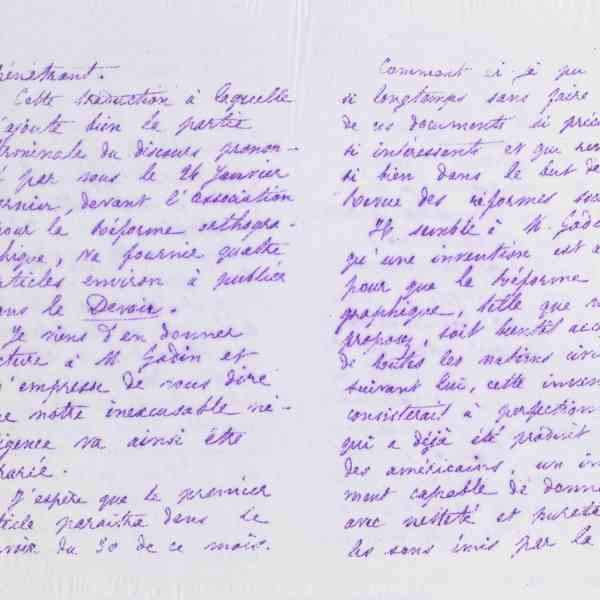 pénétrant.
Cette traduction à laquelle
s'ajoute bien la partie
nominale du discours pronon-
é par vous le 26 Janvier
ernier, devant l'association
pour la Réforme orthogra-
phique, va fournir quatre
articles environ à publier
ans le Devoir.
Je viens d'en donner
ecture à M. Godin et
m'empresse de vous dire
ue notre inexcusable né-
gligence va ainsi être
parée.
J'espère que le premier
rticle paraîtra dans le
evoir du 30 de ce mois.
Comment ai-je pu
si longtemps sans faire
de ces documents si préci
si intéressants et qui ren
si bien dans le but de
Revue des réformes soci
Il semble à M. Godin
qu'une invention est
pour que la Réforme
graphique, telle que v
proposez, soit bientôt acc
de toutes les nations civi
suivant lui, cette inven
consisterait à perfection
qui a déjà été produit
des américains, un in
ment capable de donne
avec netteté et pureté
les sons émis par la